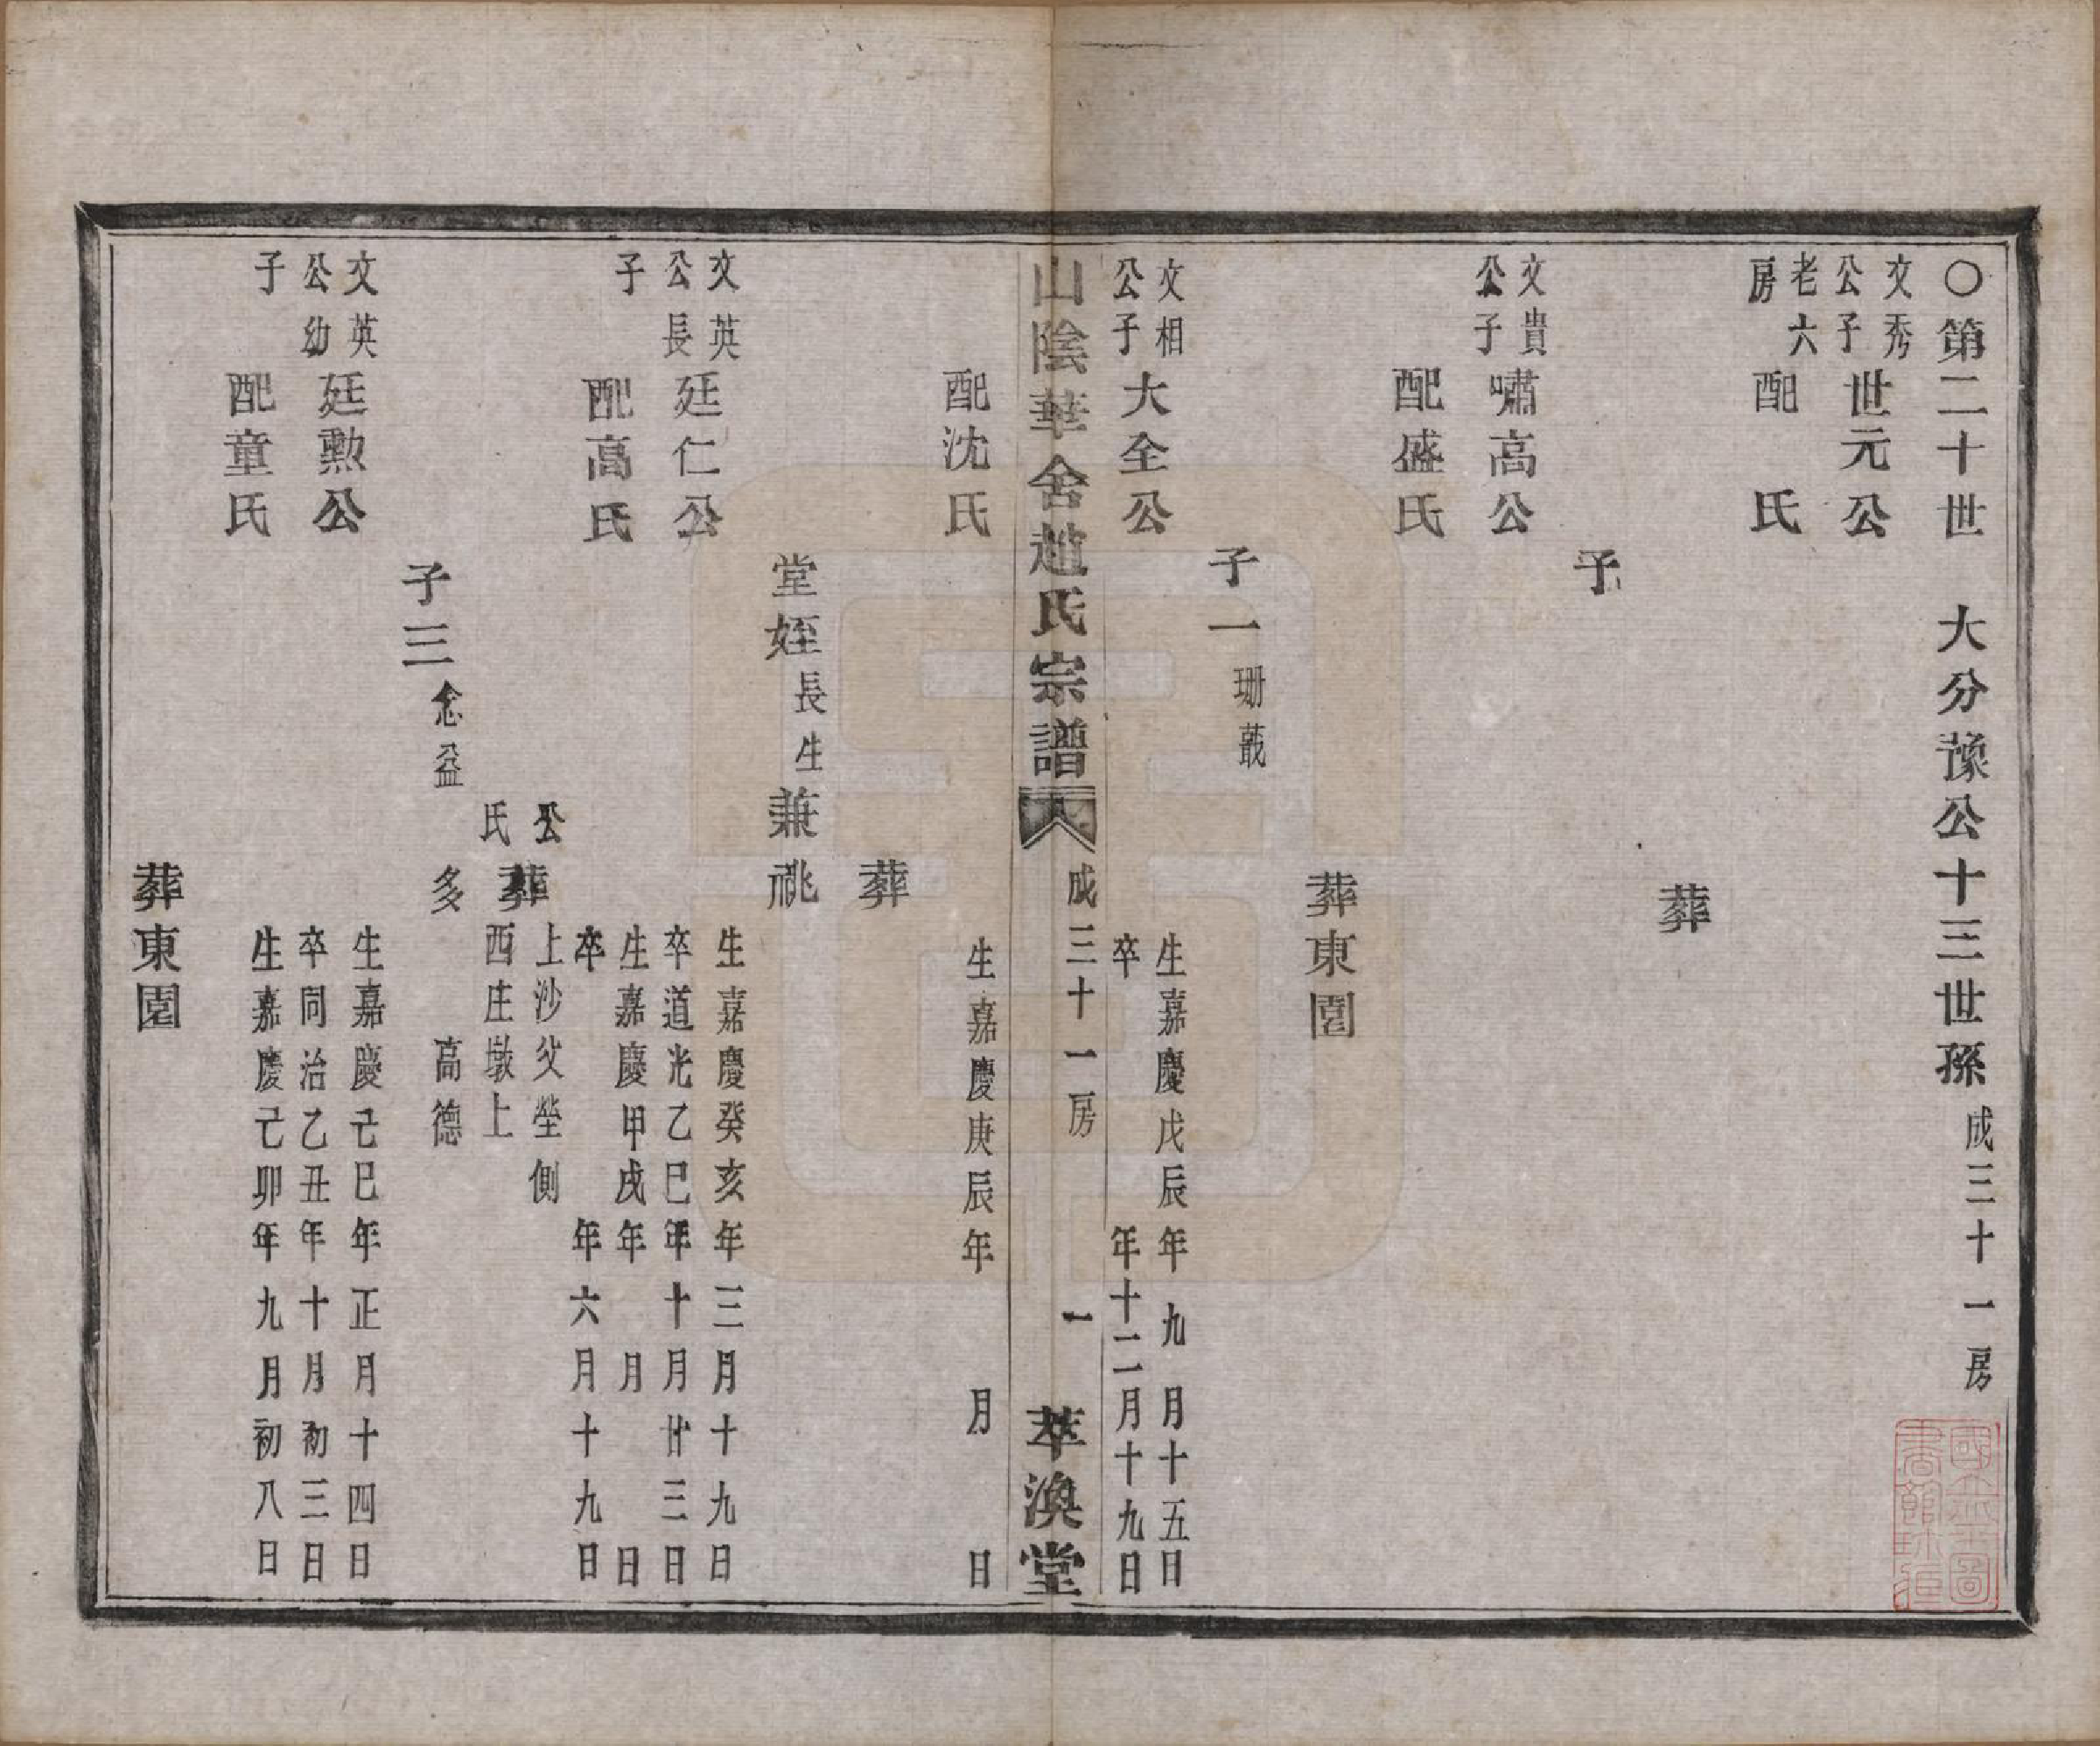 ○第二十世　大分豫公十三世孫　成三十一房
文秀
公子
老六
房
世元公
配　氏
葬
子
文貴
公子
嘯高公
配盛氏
葬東園
子一珊蕺
文相
公子
大全公
生嘉慶戊辰年九月十五日
卒　年十二月十九日
山陰華舍趙氏宗譜　成三十一房　一　萃渙堂
配沈氏
生嘉慶庚辰年　月　日
葬
堂姪長生兼祧
文英
公長
子
廷仁公
生嘉慶癸亥年三月十九日
卒道光乙巳年十月廿三日
配高氏
生嘉慶甲戌年　月　日
卒　年六月十九日
公
氏
葬
上沙父塋側
西庄墩上
子三念益　多　高德
文英
公幼
子
廷勲公
生嘉慶己巳年正月十四日
卒同治乙丑年十月初三日
配童氏
生嘉慶己卯年九月初八日
葬東園